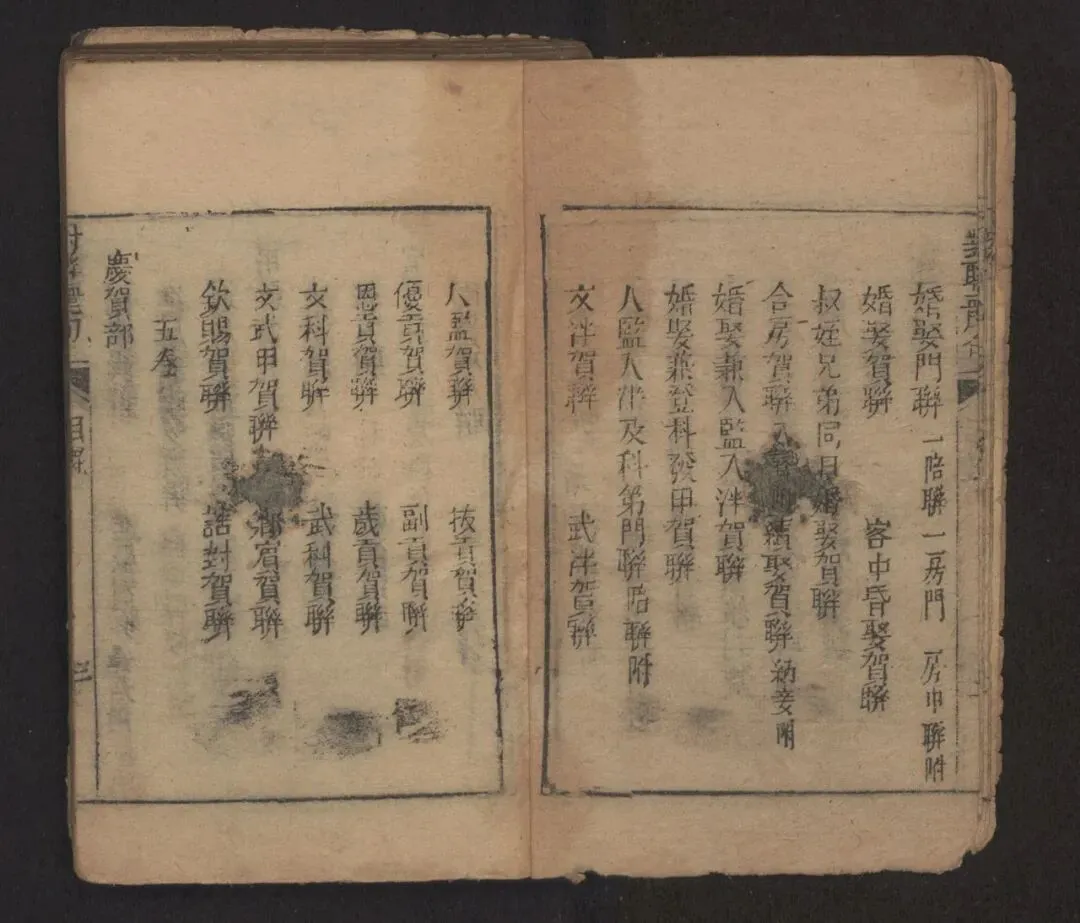 婚娶門聯 一陪聯 二房門 一房中聯附
婚娶賀聯 客中昏娶賀聯
叔姪兄弟同日婚娶賀聯
合房賀聯 續娶賀聯 納妾附
婚娶兼入監入泮賀聯
婚娶兼登科發甲賀聯
入監入泮及科第門聯 陪聯附
文泮賀聯 武泮賀聯
入監賀聯 拔貢賀聯
優貢賀聯 副貢賀聯
恩貢賀聯 歲貢賀聯
文科賀聯 武科賀聯
文武甲賀聯 鄉宦賀聯
欽賜賀聯 誥對賀聯
五卷
慶賀部
目錄